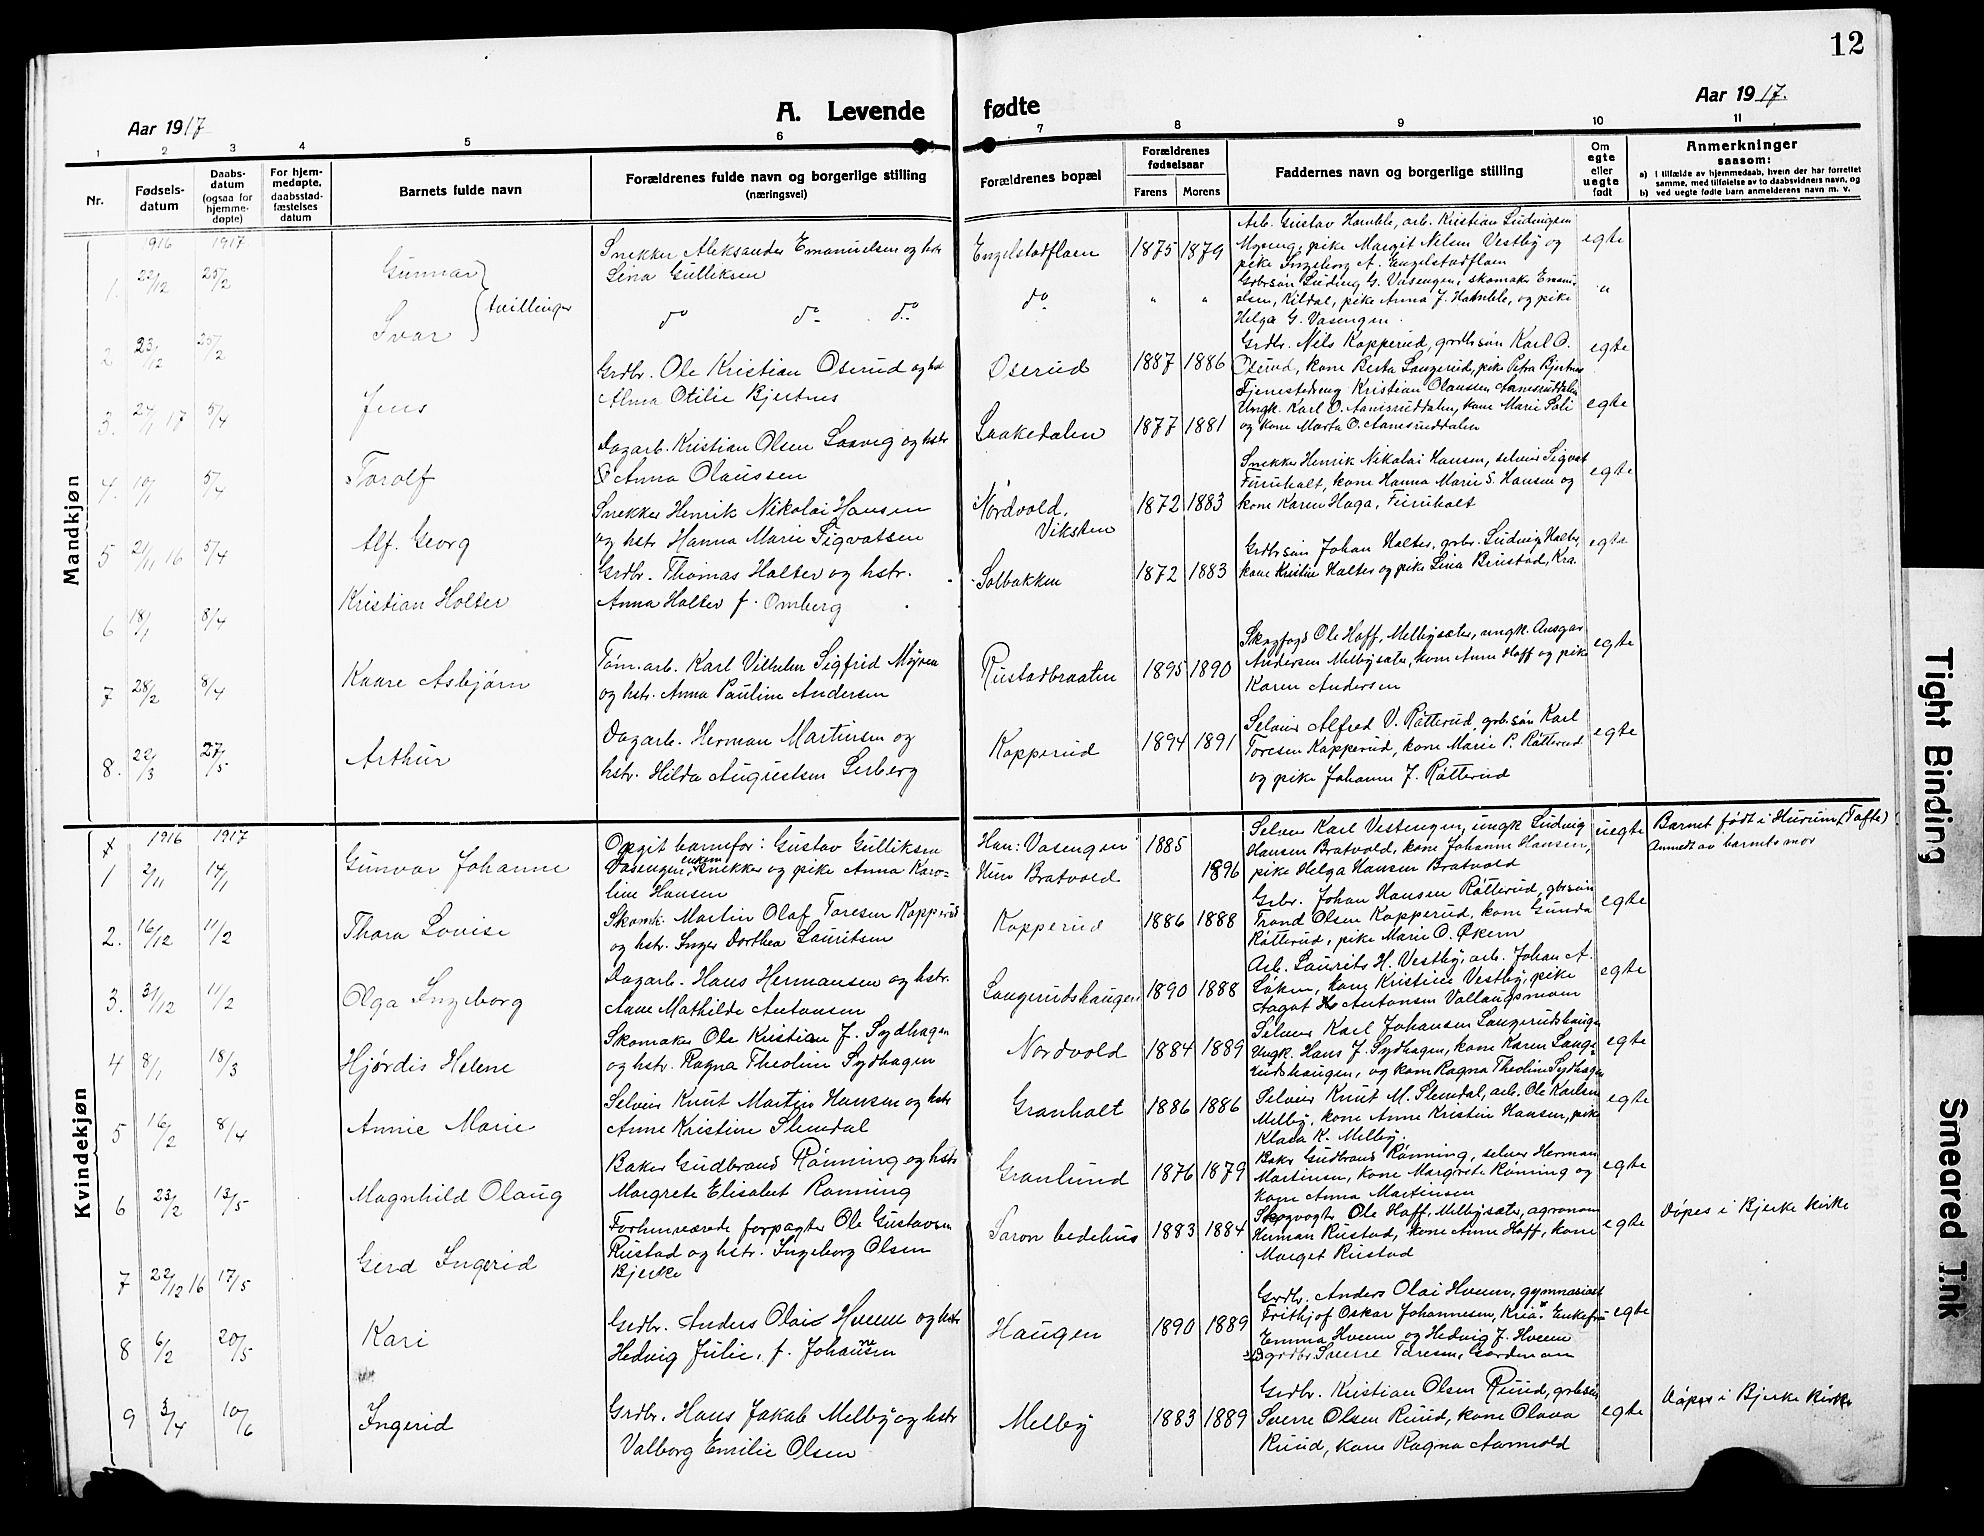 12
Aar 1917
A. Levende fødte
Aar 1917.
1 2 3 4 5 6 7 8 9 10 11
Nr.
Fødsels-
datum
Daabs-
datum
(ogsaa for
hjemme-
døpte)
For hjem-
medøpte,
daabsstad-
fæstelses
datum
Barnets fulde navn
Forældrenes fulde navn og borgerlige stilling
(næringsvei)
Forældrenes bopæl
Forældrenes
fødselsaar
Farens Morens
Faddernes navn og borgerlige stilling
Om
egte
eller
uegte
født
Anmerkninger
saasom:
a) i tilfælde av hjemmedaab, hvem der har forrettet
samme, med tilføielse av to daabsvidners navn, og
b) ved uegte fødte barn anmelderens navn m. v.
Mandkjøn
1916 1917
1. 22/12 25/2
Gunnar
tvillinger
Snekker Aleksander Emanuelsen og hstr
Lina Gulliksen
Engelstadflaen 1875 1879
Arb. Gustav Hamble, arb. Kristian Ludvigsen
Myreng, pike Margit Nelsen Vestby og
pike Ingeborg A. Engelstadflaen
egte
2. 23/12 25/2
Ivar
do do do
do " "
Grdbrsøn Ludvig G. Vasengen, skomaker Emanu-
elsen, Kildal, pike Anna J. Hamble, og pike
Helga G. Vasengen.
"
3. 27/1 17 5/4
Jens
Grdbr. Ole Kristian Oserud og hst
Alma Otilie Bjertnes
Oserud 1887 1886
Grdbr. Nils Kopperud, grdbrsøn Karl O.
Oserud, kone Berta Langerud, pike Petra Bjertnes
egte
4. 10/1 5/4
Torolf
Dagarb. Kristian Olsen Laavig og hstr
Anna Olaussen
Laakedalen 1877 1881
Tjenestedreng Kristian Olaussen Aamsruddalen
Ungk. Karl O. Aamsruddalen, kone Marie Soli
og kone Marta O. Aamsruddalen
egte
5 21/1 16 5/4
Alf. Georg
Snekker Henrik Nikolai Hansen
og hstr Hanna Marie Sigvatsen
Nordvold,
Viksten
1872 1883
Snekker Henrik Nikolai Hansen, selveier Sigvat
Furuholt, kone Hanna Marie S. Hansen og
kone Karen Haga, Furuholt
egte
6 18/1 8/4
Kristian Holter
Grdbr. Thomas Holter og hstr.
Anna Holter f. Omberg
Solbakken 1872 1883
Grdbrsøn Johan Holter, grbr. Ludvig Holter,
kone Kristine Holter og pike Lina Brustad, Kra.
egte
7 28/2 8/4
Kaare Asbjørn
Tøm.arb. Karl Vilhelm Sigfrid Myren
og hstr. Anna Pauline Andersen
Rustadbraaten 1895 1890
Skogfogd Ole Hoff, Melbysæter, ungk. Ansgar
Andersen Melbysæter, kone Anne Hoff og pike
Karen Andersen
egte
8. 22/3 27/5
Arthur
Dagarb. Herman Martinsen og
hstr. Hilda Augustsen Serberg
Kopperud 1894 1891
Selveier Alfred V. Røtterud, grbrsøn Karl
Toresen Kopperud, kone Marie P. Røtterud
og pike Johanne J. Røtterud
egte
Kvindekjøn
1916 1917
1 2/11 14/1
Gunvor Johanne
Opgit barnefar: Gustav Gulliksen
Vasengen, snekker og pike Anna Karo-
line Hansen
Han: Vasengen 1885
Hun Bratvold 1896
Selveier Karl Vestengen, ungk Ludvig
Hansen Bratvold, kone Johanne Hansen,
pike Helga Hansen Bratvold
uegte
Barnet født i Hurum (Tofte)
Anmeldt av barnets mor
2. 16/12 11/2
Thora Lovise
Skomk. Martin Olaf Toresen Kopperud
og hstr. Inger Dorthea Lauritsen
Kopperud 1886 1888
Grbr. Johan Hansen Røtterud, gbrsøn
Trond Olsen Kopperud, kone Gunda
Røtterud, pike Marie O. Økern
egte
3. 31/12 11/2
Olga Ingeborg
Dagarb. Hans Hermansen og hstr.
Anne Mathilde Antonsen
Langerudshaugen 1890 1888
Arb. Laurits H. Vestby, arb. Johan A.
Løken, kone Kristine Vestby, pike
Aagot Antonsen Vallaugsmoen
egte
4 8/1 18/3
Hjørdis Helene
Skomaker Ole Kristian J. Sydhagen
og hstr. Ragna Theoline Sydhagen
Nordvold 1884 1889
Selveier Karl Johansen Langerudshaugen
Ungk. Hans J. Sydhagen, kone Karen Lange-
rudshaugen, og kone Ragna Theoline Sydhagen
egte
5 16/2 8/4
Annie Marie
Selveier Knut Martin Hansen og hstr
Anne Kristine Slemdal
Granholt 1886 1886
Selveier Knut M. Slemdal, arb. Ole Karlsen
Melby, kone Anne Kristine Hansen, pike
Klara K. Melby.
egte
6 23/2 13/5
Magnhild Olaug
Baker Gudbrand Rønning og hstr
Margrete Elisabet Rønning
Granlund 1876 1879
Baker Gudbrand Rønning, selveier Herman
Martinsen, kone Margrete Rønning og
kone Anna Martinsen
egte
7 22/12 16 17/5
Gerd Ingerid
Forhenværende forpagter Ole Gustavsen
Rustad og hstr. Ingeborg Olsen
Bjerke
Saron bedehus 1883 1884
Skogvogter Ole Hoff, Melbysæter, agronom
Herman Rustad, kone Anne Hoff, kone
Marget Rustad
egte
Døpes i Bjerke kirke
8 6/2 20/5
Kari
Grdbr. Anders Olai Hveem og hstr
Hedvig Julie, f. Johannesen
Haugen 1890 1889
Grdbr. Anders Olai Hveem, gymnasiast
Frithjof Oskar Johannesen, Kria. Enkefru
Emma Hveem og Hedvig J. Hveem
grdbr Sverre Toresen, Gardmon
egte
9 3/4 10/6
Ingerid
Grdbr. Hans Jakob Melby og hstr
Valborg Emilie Olsen
Melby 1883 1889
Grdbr. Kristian Olsen Ruud, grbrsøn
Sverre Olsen Ruud, kone Olava
Ruud, kone Ragna Aamold
egte
Døpes i Bjerke kirke
Tight Binding
Smeared Ink